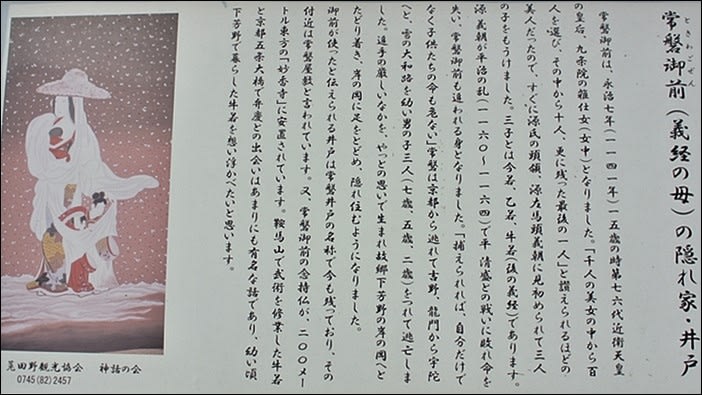 常磐御前(義経の母)の隠れ家・井戸
ときわごぜん
常磐御前は、永治七年(一一四一年)一五歳の時第七六代近衛天皇
の皇后、九条院の雑仕女(女中)となりました。「千人の美女の中から百
人を選び、その中から十人、更に残った最後の一人」と讃えられるほどの
美人だったので、すぐに源氏の頭領、源左馬頭義朝に見初められて三人
の子をもうけました。三子とは今若、乙若、牛若(後の義経)であります。
源義朝が平治の乱(一一六〇〜一一六四)で平清盛との戦いに敗れ命を
失い、常磐御前も追われる身となりました。「捕えられれば、自分だけで
なく子供たちの命も危ない」常磐は京都から逃れて吉野、龍門から宇陀
へと、雪の大和路を幼い男の子三人(七歳、五歳、二歳)をつれて逃亡しま
した。追手の厳しいなかを、やっとの思いで生まれ故郷下芳野の岸の岡へと
たどり着き、岸の岡に足をとどめ、隠れ住むようになりました。
御前が使ったと伝えられる井戸は常磐井戸の名称で今も残っており、その
付近は常磐屋敷と言われています。又、常磐御前の念持仏が、二〇〇メー
トル東方の「妙香寺」に安置されています。鞍馬山で武術を修業した牛若
と京都五条大橋で弁慶との出会いはあまりにも有名な話であり、幼い頃
下芳野で暮らした牛若を想い浮かべたいと思います。
菟田野観光協会 神話の会
0745(82)2457